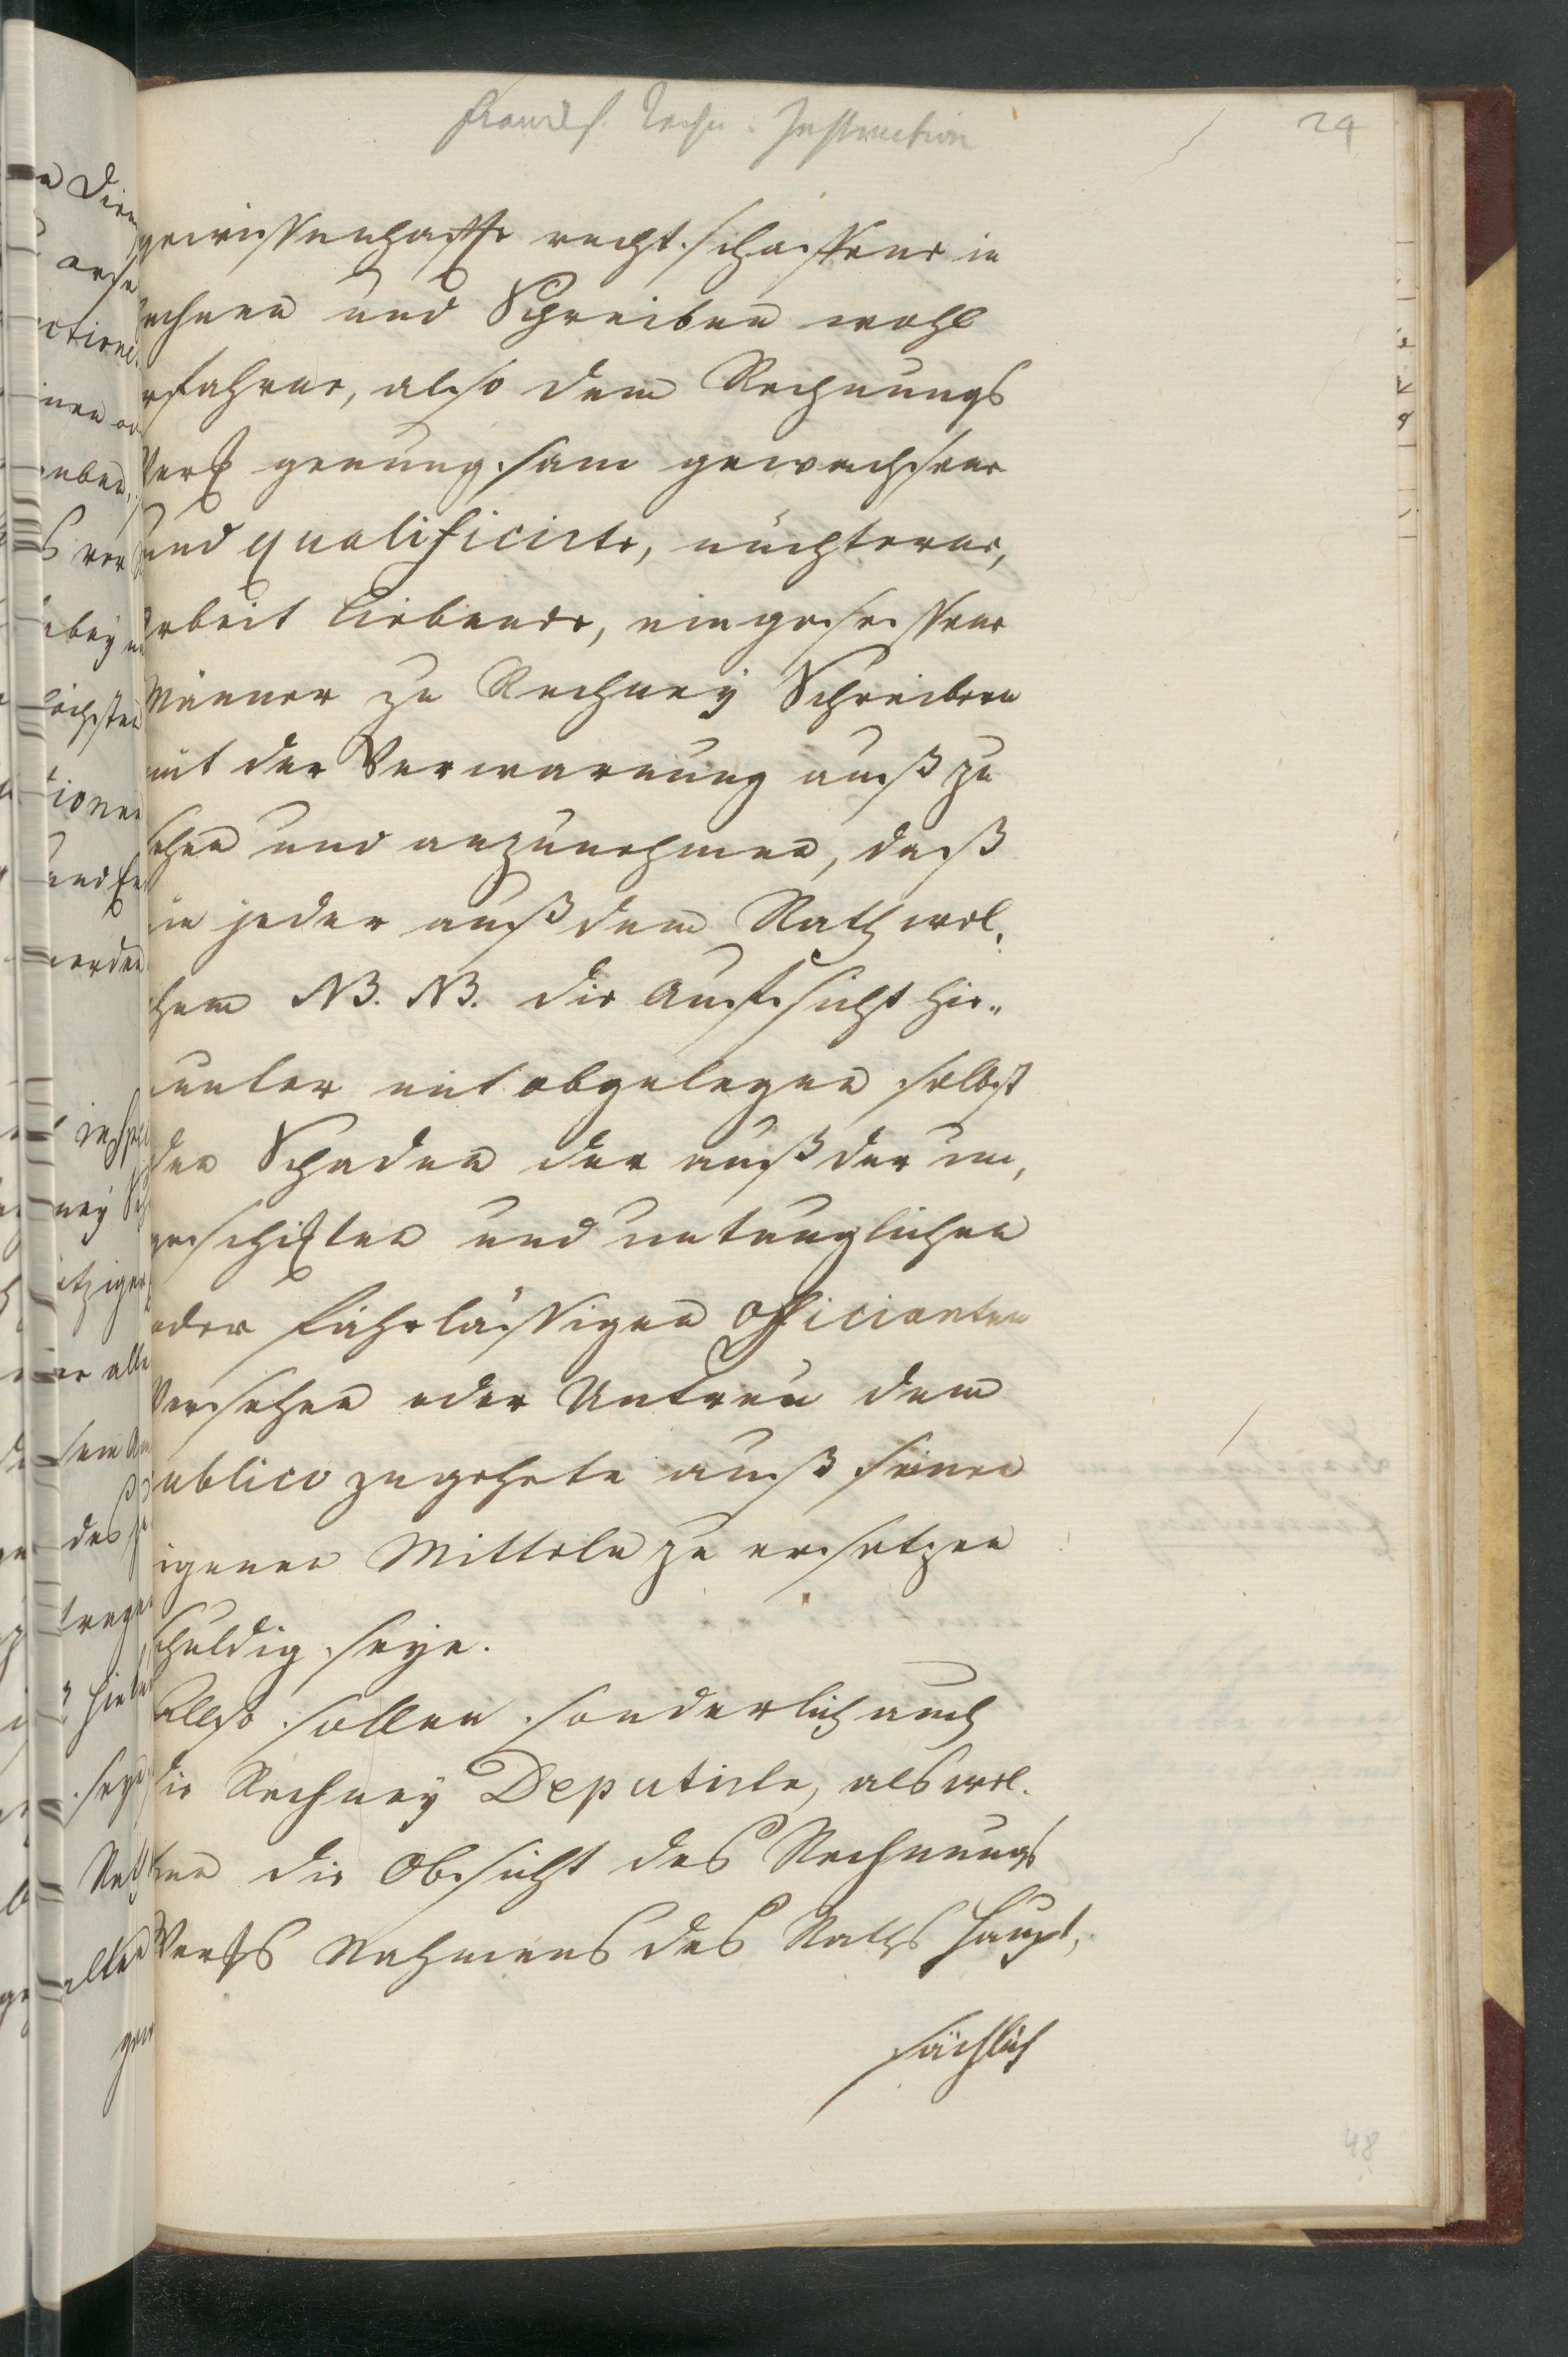 Instruction
24
gewissenhaffte recht schaffene in
echnen und Schreiben wohl
rfahrne, also dem Rechnungs
Werck genung sam gewachsene
und qualificirte, nüchterne,
Arbeit liebende, eingesessene
Männer zu Rechney Schreibern
mit der Verwarnung auß zu
sehen und anzunehmen, daß
ein jeder auß dem Rath wel,
chem NB. NB. die Auffsicht hie,,
runter mit obgelegen selbst
den Schaden der auß der un,
geschickten und untauglichen
oder fahrlässigen Officianten
Versehen oder Untreu dem
ublico zugehete auß seinen
igenen Mitteln zu ersetzen
schuldig seye.
Allso sollen sonderlich auch
die Rechney Deputirte, als wel.
chen die Obsicht des Rechnungs
Wercks Nahmens des Raths haupt,
sächlich
48